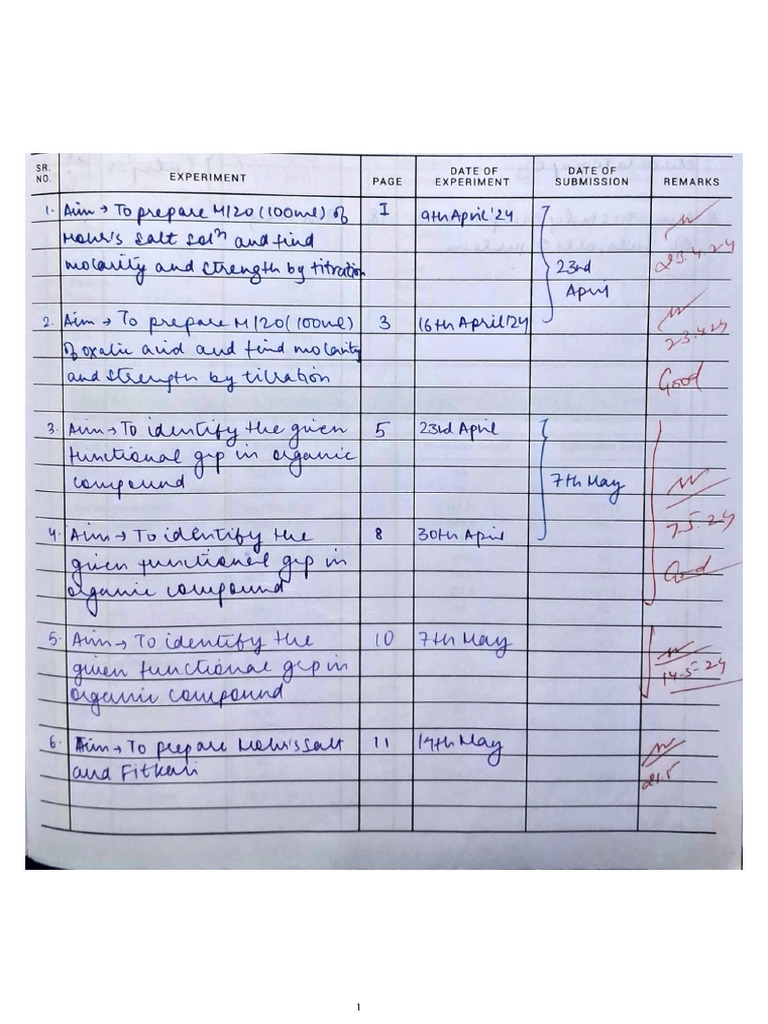 SR. NO. EXPERIMENT PAGE DATE OF EXPERIMENT DATE OF SUBMISSION REMARKS
1. Aim → To prepare M/20 (100ml) of I 9th April '24
Mohr's Salt Solⁿ and find
molarity and strength by titration 23rd 23.4.24
April
2. Aim → To prepare M/20 (100ml) 3 16th April '24
of oxalic acid and find molarity 23.4.24
and strength by titration Good
3. Aim → To identify the given 5 23rd April
functional grp in organic
compound 7th May
4. Aim → To identify the 8 30th April 7.5.24
given functional grp in Good
organic compound
5. Aim → To identify the 10 7th May
given functional grp in 14.5.24
organic compound
6. Aim → To prepare Mohr's Salt 11 14th May
and Fitkari 21.5
1